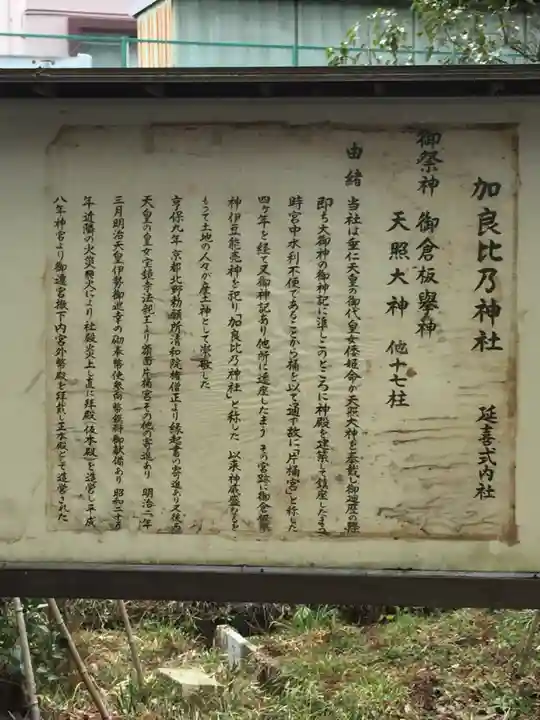 加良比乃神社　延喜式内社
御祭神　御倉板擧神
天照大神　他十七柱
由緒　当社は垂仁天皇の御代皇女倭姫命が天照大神を奉戴し御遷座の際
即ち大御神の御神記に準じこのところに神殿を建築して鎮座したまう
時宮中水利不便であることから樋を以て通す故に「片樋宮」と称した
四ヶ年を経て又御神記あり他所に遷座したまう その宮跡に御倉板擧
神伊豆能売神を祀り「加良比乃神社」と称した 以来神威盛なるを
もって土地の人々が産土神として崇敬した
享保九年 京都北野勅願所清和院権僧正より縁起書の寄進あり 又後西
天皇の皇女宝鏡寺法親王より額面片樋宮その他の寄進あり 明治二年
三月明治天皇伊勢御巡幸の砌奉幣使参向幣饌料御献備あり 昭和二十五
年近隣の火災飛火により社殿炎上し直に拝殿(仮本殿)を造営し平成
八年神宮より御遷宮撤下内宮外幣殿を拝戴し正本殿として造営された